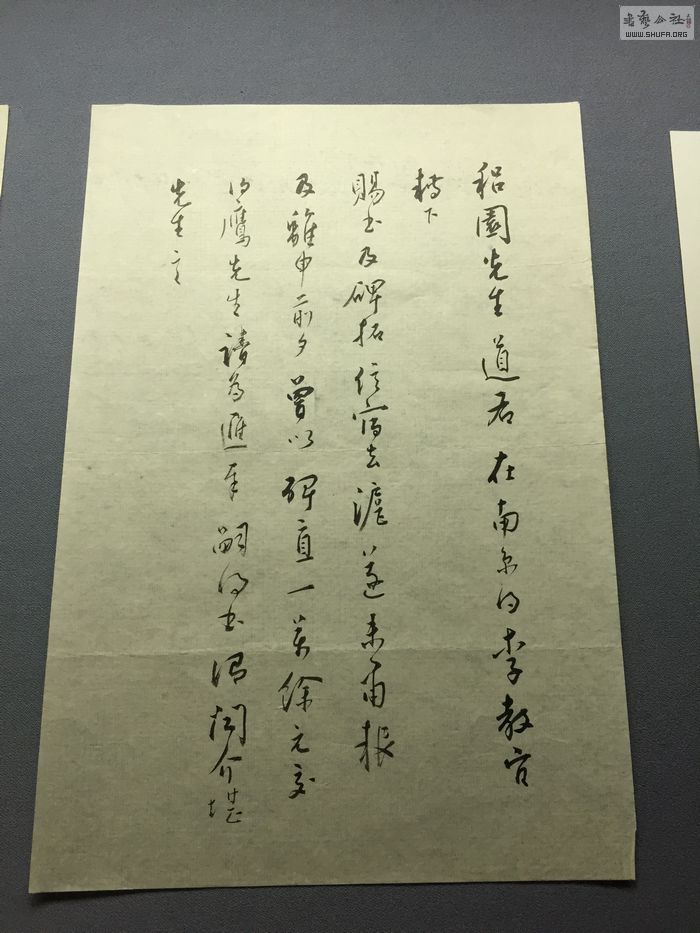 書藝公社
WWW.SHUFA.ORG
稆園先生道右在南京得李教官
轉下
賜書及碑拓信宿去滬遂未報
及離申前夕曾以碑直一萬餘元交
鷹先生請為匯奉嗣得書介堪
先生言